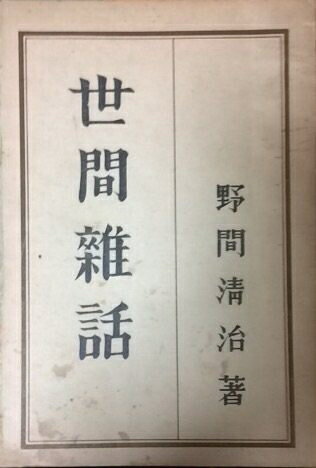 野間淸治著
世間雜話